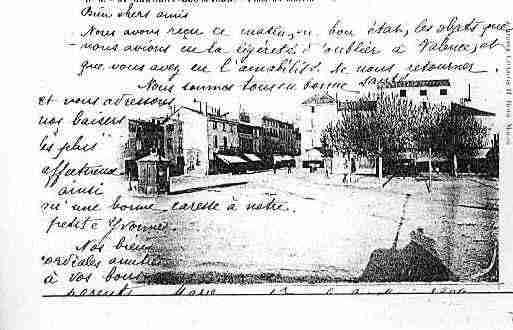 Bien chers amis
Nous avons reçu ce matin, en bon état, les objets que
nous avions eu la légèreté d'oublier à Valence, et
que vous avez eu l'amabilité de nous retourner.
Nous sommes tous en bonne santé
et vous adressons
nos baisers
les plus
affectueux
ainsi
qu'une bonne caresse à notre
petite Yvonne.
Nos bien
cordiales amitiés
à vos bons
parents